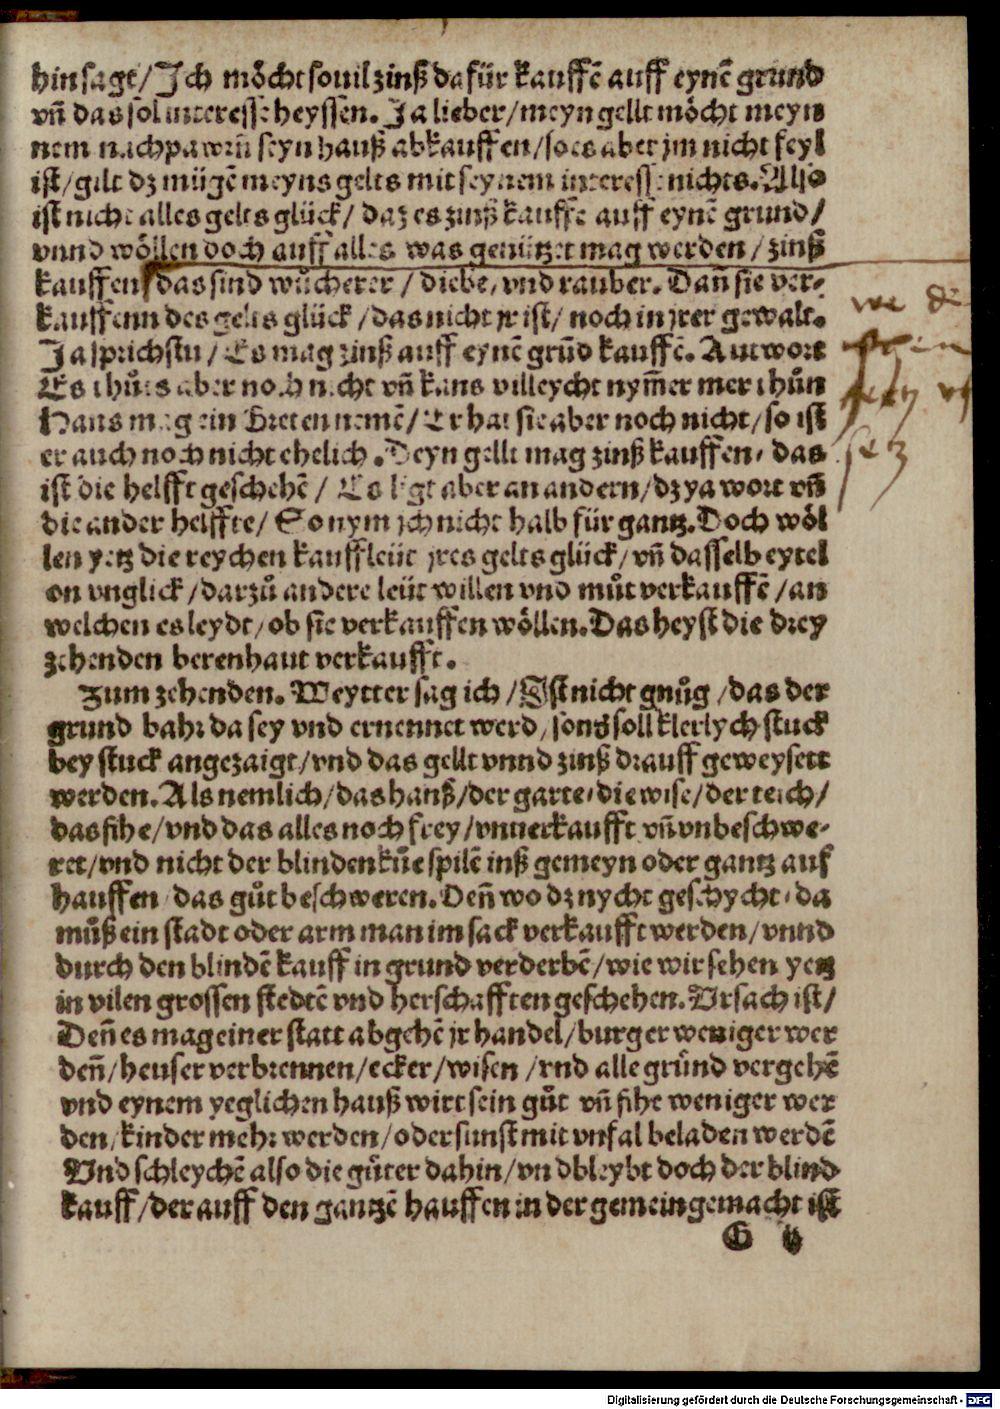 hin sagt/ Ich möcht souil zinß dafür kauffē auff eynē grund
vn̄ das sol interesse heyssen. Ja lieber/ meyn gellt möcht meyn
nem nachpawrn seyn hauß abkauffen/ so es aber jm nicht feyl
ist/ gilt dz mügē meyns gelts mit seynem interesse nichts. Also
ist nicht alles gelts glück/ daz es zinß kauffe auff eynē grund/
vnnd wöllen doch auff alles was genützet mag werden/ zinß
kauffen/ das sind wůcherer/ diebe, vnd rauber. Dan̄ sie ver-
kauffenn des gelts glück/ das nicht jr ist/ noch in jrer gewalt.
Ja sprichstu/ Es mag zinß auff eynē grūd kauffē. Antwort
Es thůts aber noch nicht vn̄ kans villeycht nym̄er mer thůn
Hans mag ein Greten nemē/ Er hat sie aber noch nicht/ so ist
er auch noch nicht ehelich. Deyn gellt mag zinß kauffen, das
ist die helfft geschehē/ Es ligt aber an andern/ dz ya wort vn̄
die ander helffte/ So nym jch nicht halb für gantz. Doch wöl
len yetz die reychen kauffleüt jres gelts glück/ vn̄ dasselb eytel
on vnglick/ darzů andere leüt willen vnd můt verkauffē/ an
welchen es leydt/ ob sie verkauffen wöllen. Das heyst die drey
zehenden berenhaut verkaufft.
Zum zehenden. Weytter sag ich/ Ist nicht gnůg/ das der
grund bahr da sey vnd ernennet werd, sonder soll klerlych stuck
bey stuck angezaigt/ vnd das gellt vnnd zinß drauff geweysett
werden. Als nemlich/ das hauß/ der garte, die wise/ der teich/
das fihe/ vnd das alles noch frey/ vnuerkaufft vn̄ vnbeschwe-
ret/ vnd nicht der blindenkůe spilē inß gemeyn oder gantz auf
hauffen das gůt beschweren. Den̄ wo dz nycht geschycht, da
můß ein stadt oder arm man im sack verkaufft werden/ vnnd
durch den blindē kauff in grund verderbē/ wie wir sehen yetz
in vilen grossen stedtē vnd herschafften geschehen. Vrsach ist/
Den̄ es mag einer statt abgehē jr handel/ burger weniger wer
den̄/ heuser verbrennen/ ecker/ wisen/ vnd alle gründ vergehē
vnd eynem yeglichen hauß wirt sein gůt vn̄ fihe weniger wer
den/ kinder mehr werden/ oder sunst mit vnfal beladen werdē
Vnd schleychē also die gůter dahin/ vnd bleybt doch der blind
kauff/ der auff den gantzē hauffen in der gemein gemacht ist
G ij
Digitalisierung gefördert durch die Deutsche Forschungsgemeinschaft - DFG